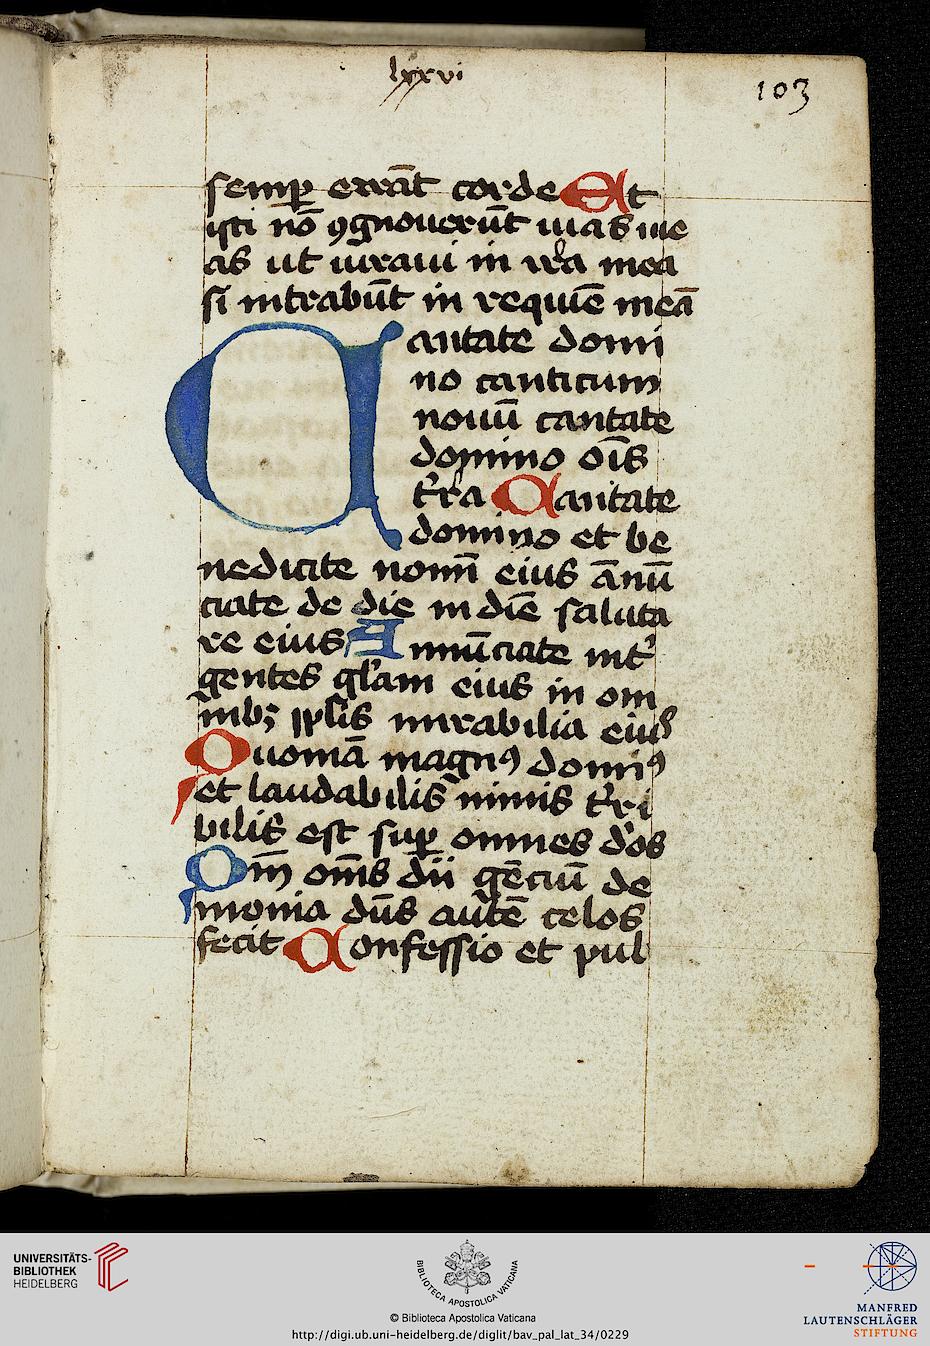 lxxvi
103
semꝑ errāt corde Et
isti nō ꝯgnouerūt uias me
as ut iuraui in ira mea
si intrabūt in requiē meā
Cantate domi
no canticum
nouū cantate
domino oīs
t̕ra Cantate
domino et be
nedicite nomī eius ānū
ciate de die in diē saluta
re eius Annūciate int̕
gentes gl̕am eius in om
nibꝫ ppl̕is mirabilia eius
Quoniā magnꝰ dominꝰ
et laudabilis nimis t̕ri
bilis est suꝑ omnes d̕os
Qm̄ om̄s dii gēciū de
monia dn̄s autē celos
fecit Confessio et pul
UNIVERSITÄTS-
BIBLIOTHEK
HEIDELBERG
BIBLIOTECA APOSTOLICA VATICANA
© Biblioteca Apostolica Vaticana
http://digi.ub.uni-heidelberg.de/diglit/bav_pal_lat_34/0229
MANFRED
LAUTENSCHLÄGER
STIFTUNG